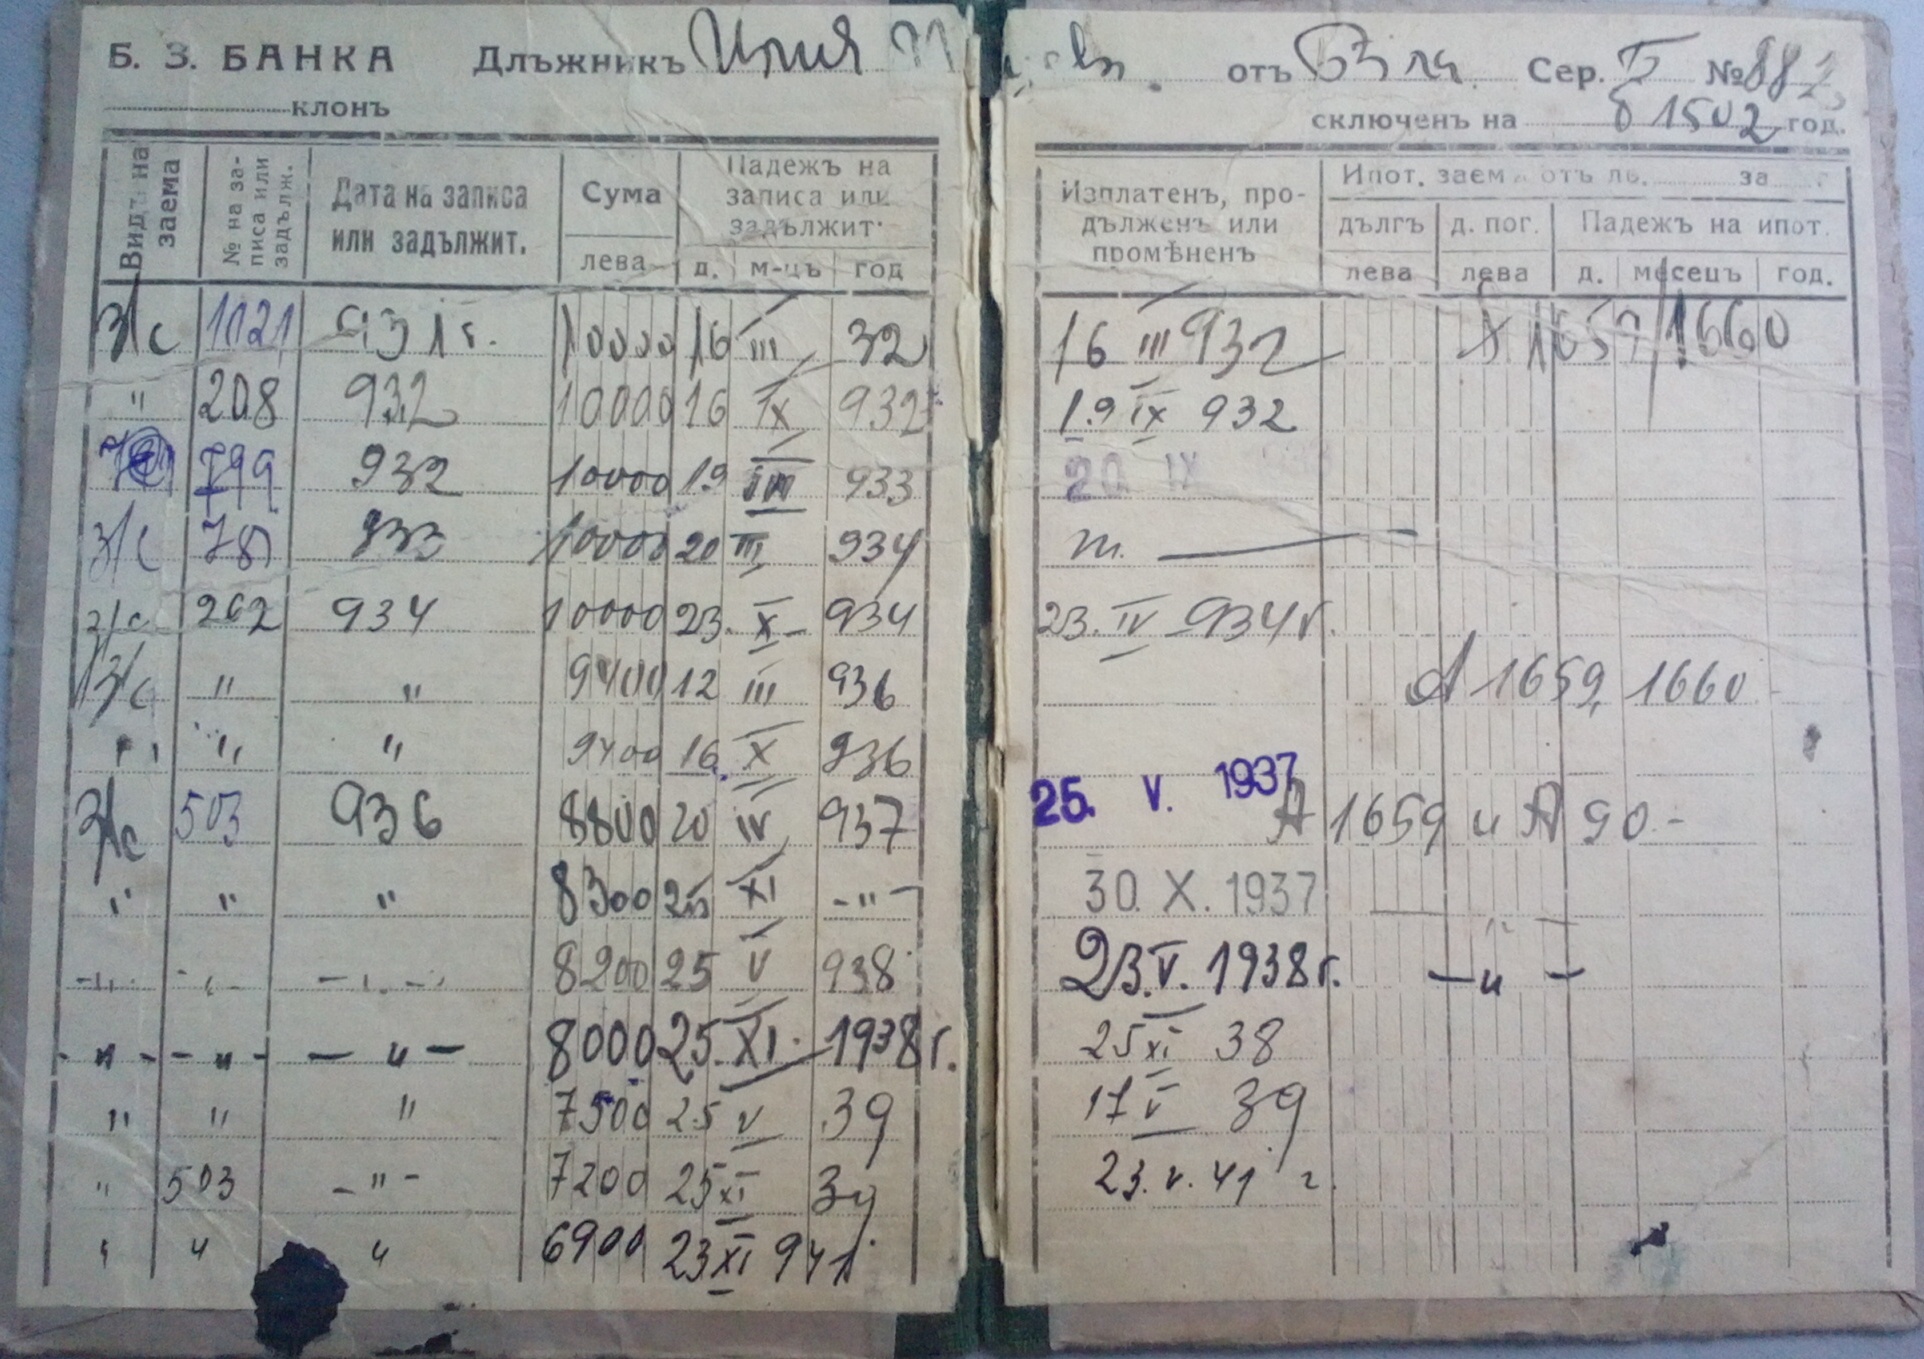 Б. З. БАНКА Длъжникъ Илия отъ Сер. Б № 882
клонъ сключенъ на 1502 год.
Видъ на заема № на записа или задълж. Дата на записа или задължит. Сума лева Падежъ на записа или задължит. д. м-цъ год Изплатенъ, продълженъ или промѣненъ Ипот. заем отъ лв. за г
дългъ д. пог. Падежъ на ипот.
лева лева д. месецъ год.
З/с 1121 931 г. 10000 16 III 32 16 III 932 1659/1660
" 208 932 10000 16 IX 932 19 IX 932
799 932 10000 19 III 933 20 IX
З/с 78 933 10000 20 III 934 m. —
з/с 262 934 10000 23. X - 934 23. IV 934 г.
З/с " " 9400 12 III 936 А 1659, 1660
" " " 9400 16 X 936
З/с 503 936 8800 20 IV 937 25. V. 1937 А 1659 и А 90.-
" " " 8300 25 XI -"- 30. X. 1937 — " —
-"- " -"- 8200 25 V 938 23. V. 1938 г. — и —
- и - - и - — и — 8000 25. XI. 1938 г. 25 XI 38
" " " 7500 25 V 39 17 V 39
" 503 -"- 7200 25 XI 39 23. V. 41 г.
" и и 6900 23 XI 941